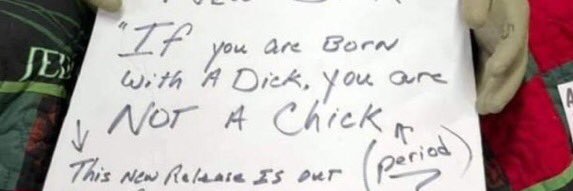 "If you are Born
with A Dick, you are
Not A Chick
(period)
This New Release Is out